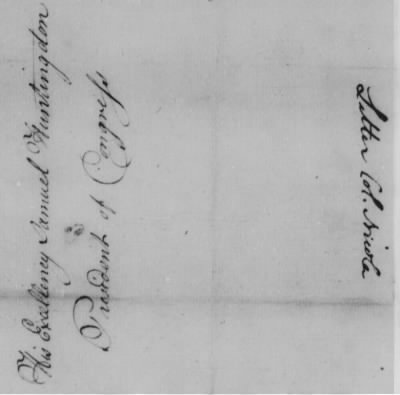 His Excellency Samuel Huntingdon
President of Congress
Letter Col. Nicola